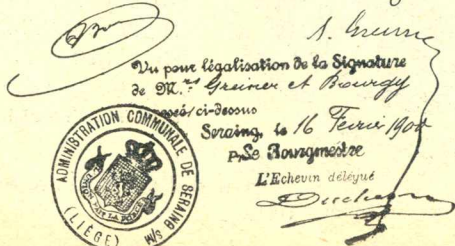 Vu pour légalisation de la Signature
de M.rs Greiner et Bourgy
ci-dessus
Seraing, le 16 Fevrier 1900
P. Le Bourgmestre
L'Echevin délégué
ADMINISTRATION COMMUNALE DE SERAING S/M
(LIÉGE)